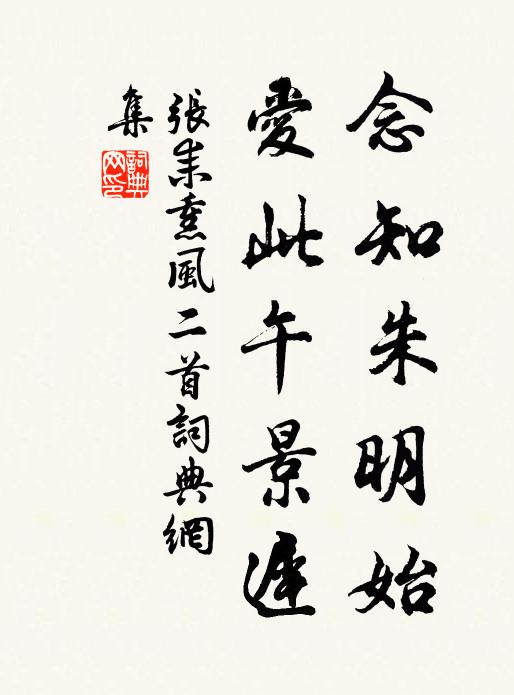 念知朱明始
愛此午景遲
張耒熏風二首詞典網
集
詞典
网印